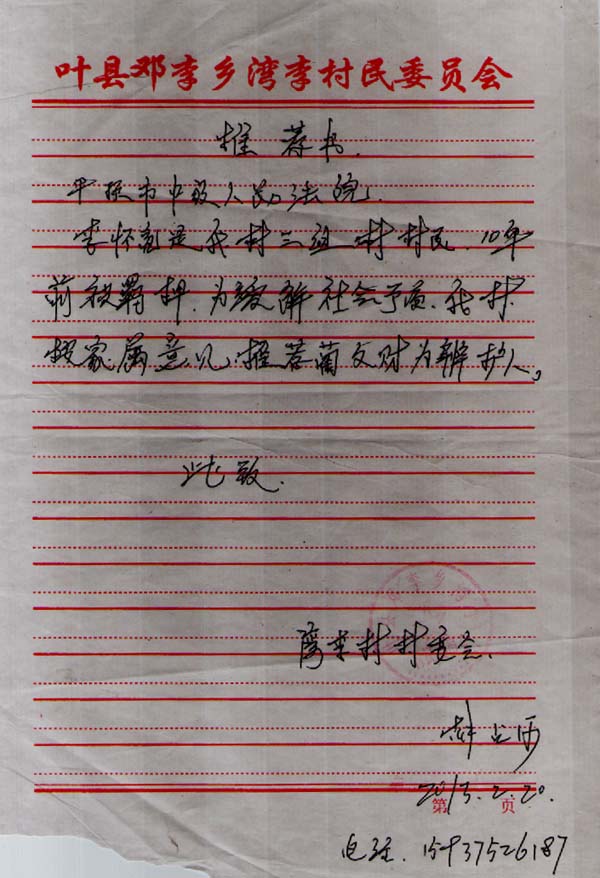 叶县邓李乡湾李村民委员会
推荐书.
平顶市中级人民法院
李怀亮是我村三组 村民. 10年
前被羁押. 为缓解社会矛盾. 我村
按家属意见. 推荐蔺文财为辨护人。
此致.
湾李村村委会.
2013.2.20.
第 页
电话. 15937526187